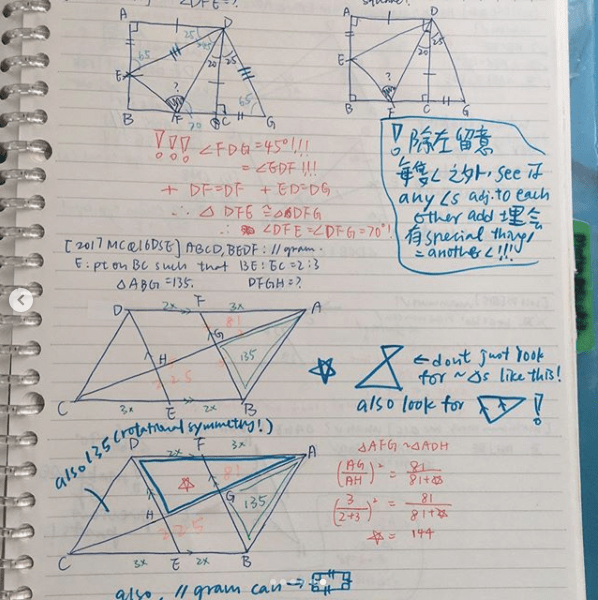 ∠DFE = ?
square!
A D
25
65
20 25
E
?
65
70
B F C G
A D
20 25
E
?
B F C G
!!! ∠FDG = 45°!!!
= ∠EDF !!!
+ DF = DF + ED = DG
∴ △ DFE ≅ △DFG
∴ ∠DFE = ∠DFG = 70°!
! 除在留意
每隻∠之外, see if
any ∠s adj. to each
other add 埋会
有 special things
= another ∠!!!
[2017 MC@16DSE] ABCD, BEDF : //gram.
E: pt on BC such that BE : EC = 2:3
△ABG = 135. DFGH = ?
D 2x F 3x A
81
G
H 135
225
C 3x E 2x B
← don't just look
for ~ △s like this!
also look for !
also 135 (rotational symmetry!)
D 2x F 3x A
81
G
H 135
225
C 3x E 2x B
△AFG ~ △ADH
(AG/AH)² = 81/(81+☆)
(3/(2+3))² = 81/(81+☆)
☆ = 144
also, //gram can →